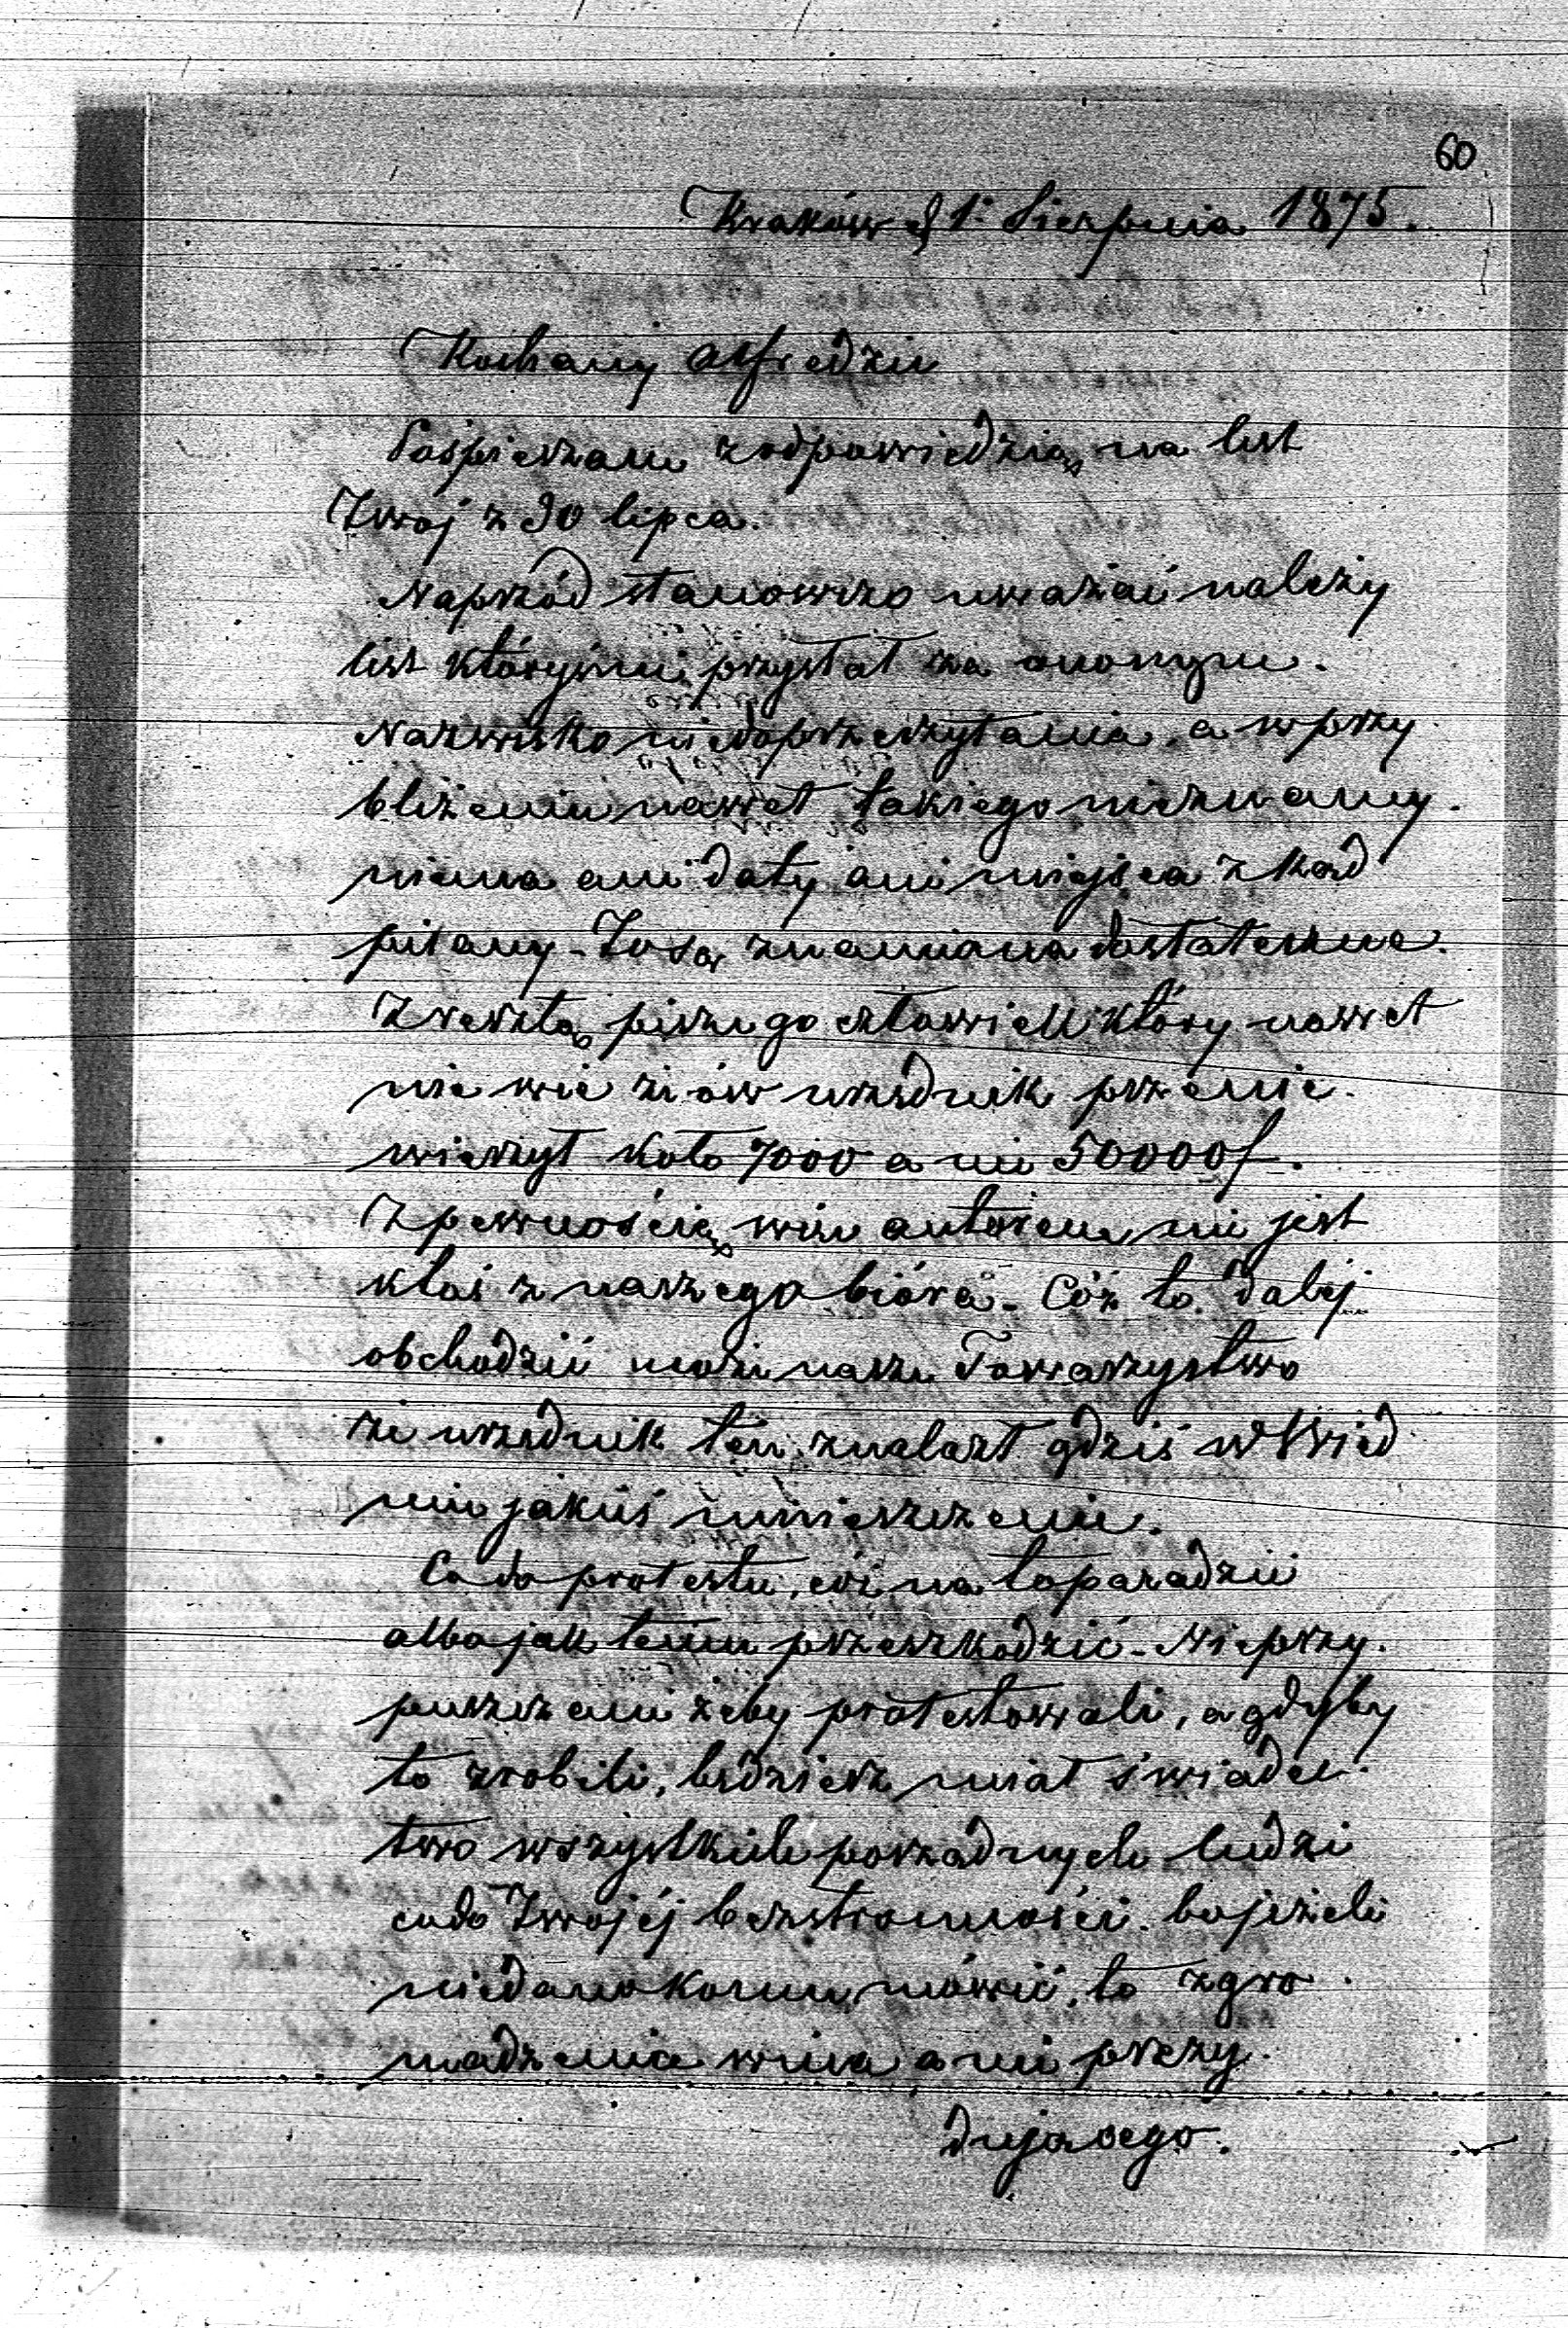 60
Kraków d 1: Sierpnia 1875.
Kochany Alfredziu
Pośpieszam z odpowiedzią na list
Twój z 30 lipca.
Naprzód stanowczo uważać należy
list któryś mi przysłał za anonym.
Nazwisko nie do przeczytania, a w przy
bliżeniu nawet takiego nieznamy.
niema ani daty ani miejsca zkąd
pisany - To są znamiona dostateczne.
Zresztą pisze go człowiek który nawet
nie wie że ów urzędnik przenie.
wierzył koło 7000 a nie 50000 f.
Z pewnością więc autorem nie jest
ktoś z naszego bióra - Cóż to daléj
obchodzić może nasze Towarzystwo
że urzędnik ten znalazł gdzieś w Wied
niu jakieś umieszczenie.
Co do protestu, cóż na to poradzić
albo jak temu przeszkodzić - Nieprzy.
puszczam żeby protestowali, a gdyby
to zrobili, będziesz miał świadec.
two wszystkich porządnych ludzi
co do Twojéj bezstronności. bo jeżeli
niedano komu mówić, to zgro.
madzenia wina a nie przy.
dującego.